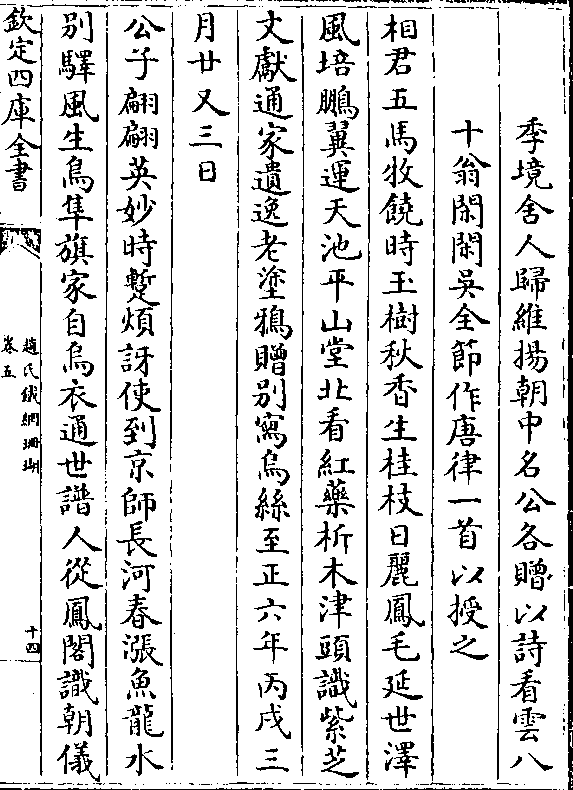 季境舍人歸維揚朝中名公各贈以詩看雲八
十翁閑閑吳全節作唐律一首以授之
相君五馬牧饒時玉樹秋香生桂枝日麗鳳毛延世澤
風培鵬翼運天池平山堂北看紅藥析木津頭識紫芝
文獻通家遺逸老塗鴉贈別寫烏絲至正六年丙戌三
月廿又三日
公子翩翩英妙時蹔煩訝使到京師長河春漲魚龍水
別驛風生鳥隼旗家自烏衣通世譜人從鳳閣識朝儀
欽定四庫全書
趙氏鐵網珊瑚
卷五
十四